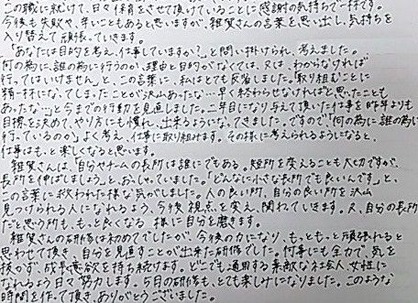 この職に就けて、日々保育をさせて頂けていることに感謝の気持ちで一杯です。
今後も失敗や、辛いこともあると思いますが、雑賀さんの言葉を思い出し、気持ちを
入り替えて頑張っていきます。
「あなたは目的を考え、仕事していますか?」と問い掛けられ、考えました。
何の為に、誰の為に行うのか、理由と目的がなくては、又は、わからなければ
行ってはいけません」と、この言葉に、私はとても反省しました。取り組むことに
精一杯になってしまったことが沢山あった…早く終わらせなければと思ったことも
あったな…と今までの行動を見直しました。二年目になり与えて頂いた仕事を昨年よりも
目標を決めて、やり方にも慣れ、出来るようになってきました。ですので「何の為に誰の為に
行っているのか」よく考え、仕事に取り組めます。その様に考えられるようになると、
仕事は、もっと楽しくなると思います。
雑賀さんは「自分やチームの長所は誰にでもある。短所を変えることも大切ですが、
長所を伸ばしましょう」と、おっしゃいました。「どんなに小さな長所でも良いんです」と、
この言葉に救われた様な気がしました。人の良い所、自分の良い所を沢山
見つけられる人になれるよう、今後、視点を変え、関わていきます。又、自分の長所
だと思う所も、もっと良くなる様に自分を磨きます。
雑賀さんの研修は初めてでしたが、今後の力になり、もっともっと頑張れると
思わせて頂き、自分を見直すことが出来た研修でした。何事にも全力で、気を
抜かず、成長意欲を持ち続けます。どこでも通用する素敵な社会人、女性に
なれるよう日々努力します。5日の研修も、とても楽しみになりました。このような
時間を作って頂き、ありがとうございました。